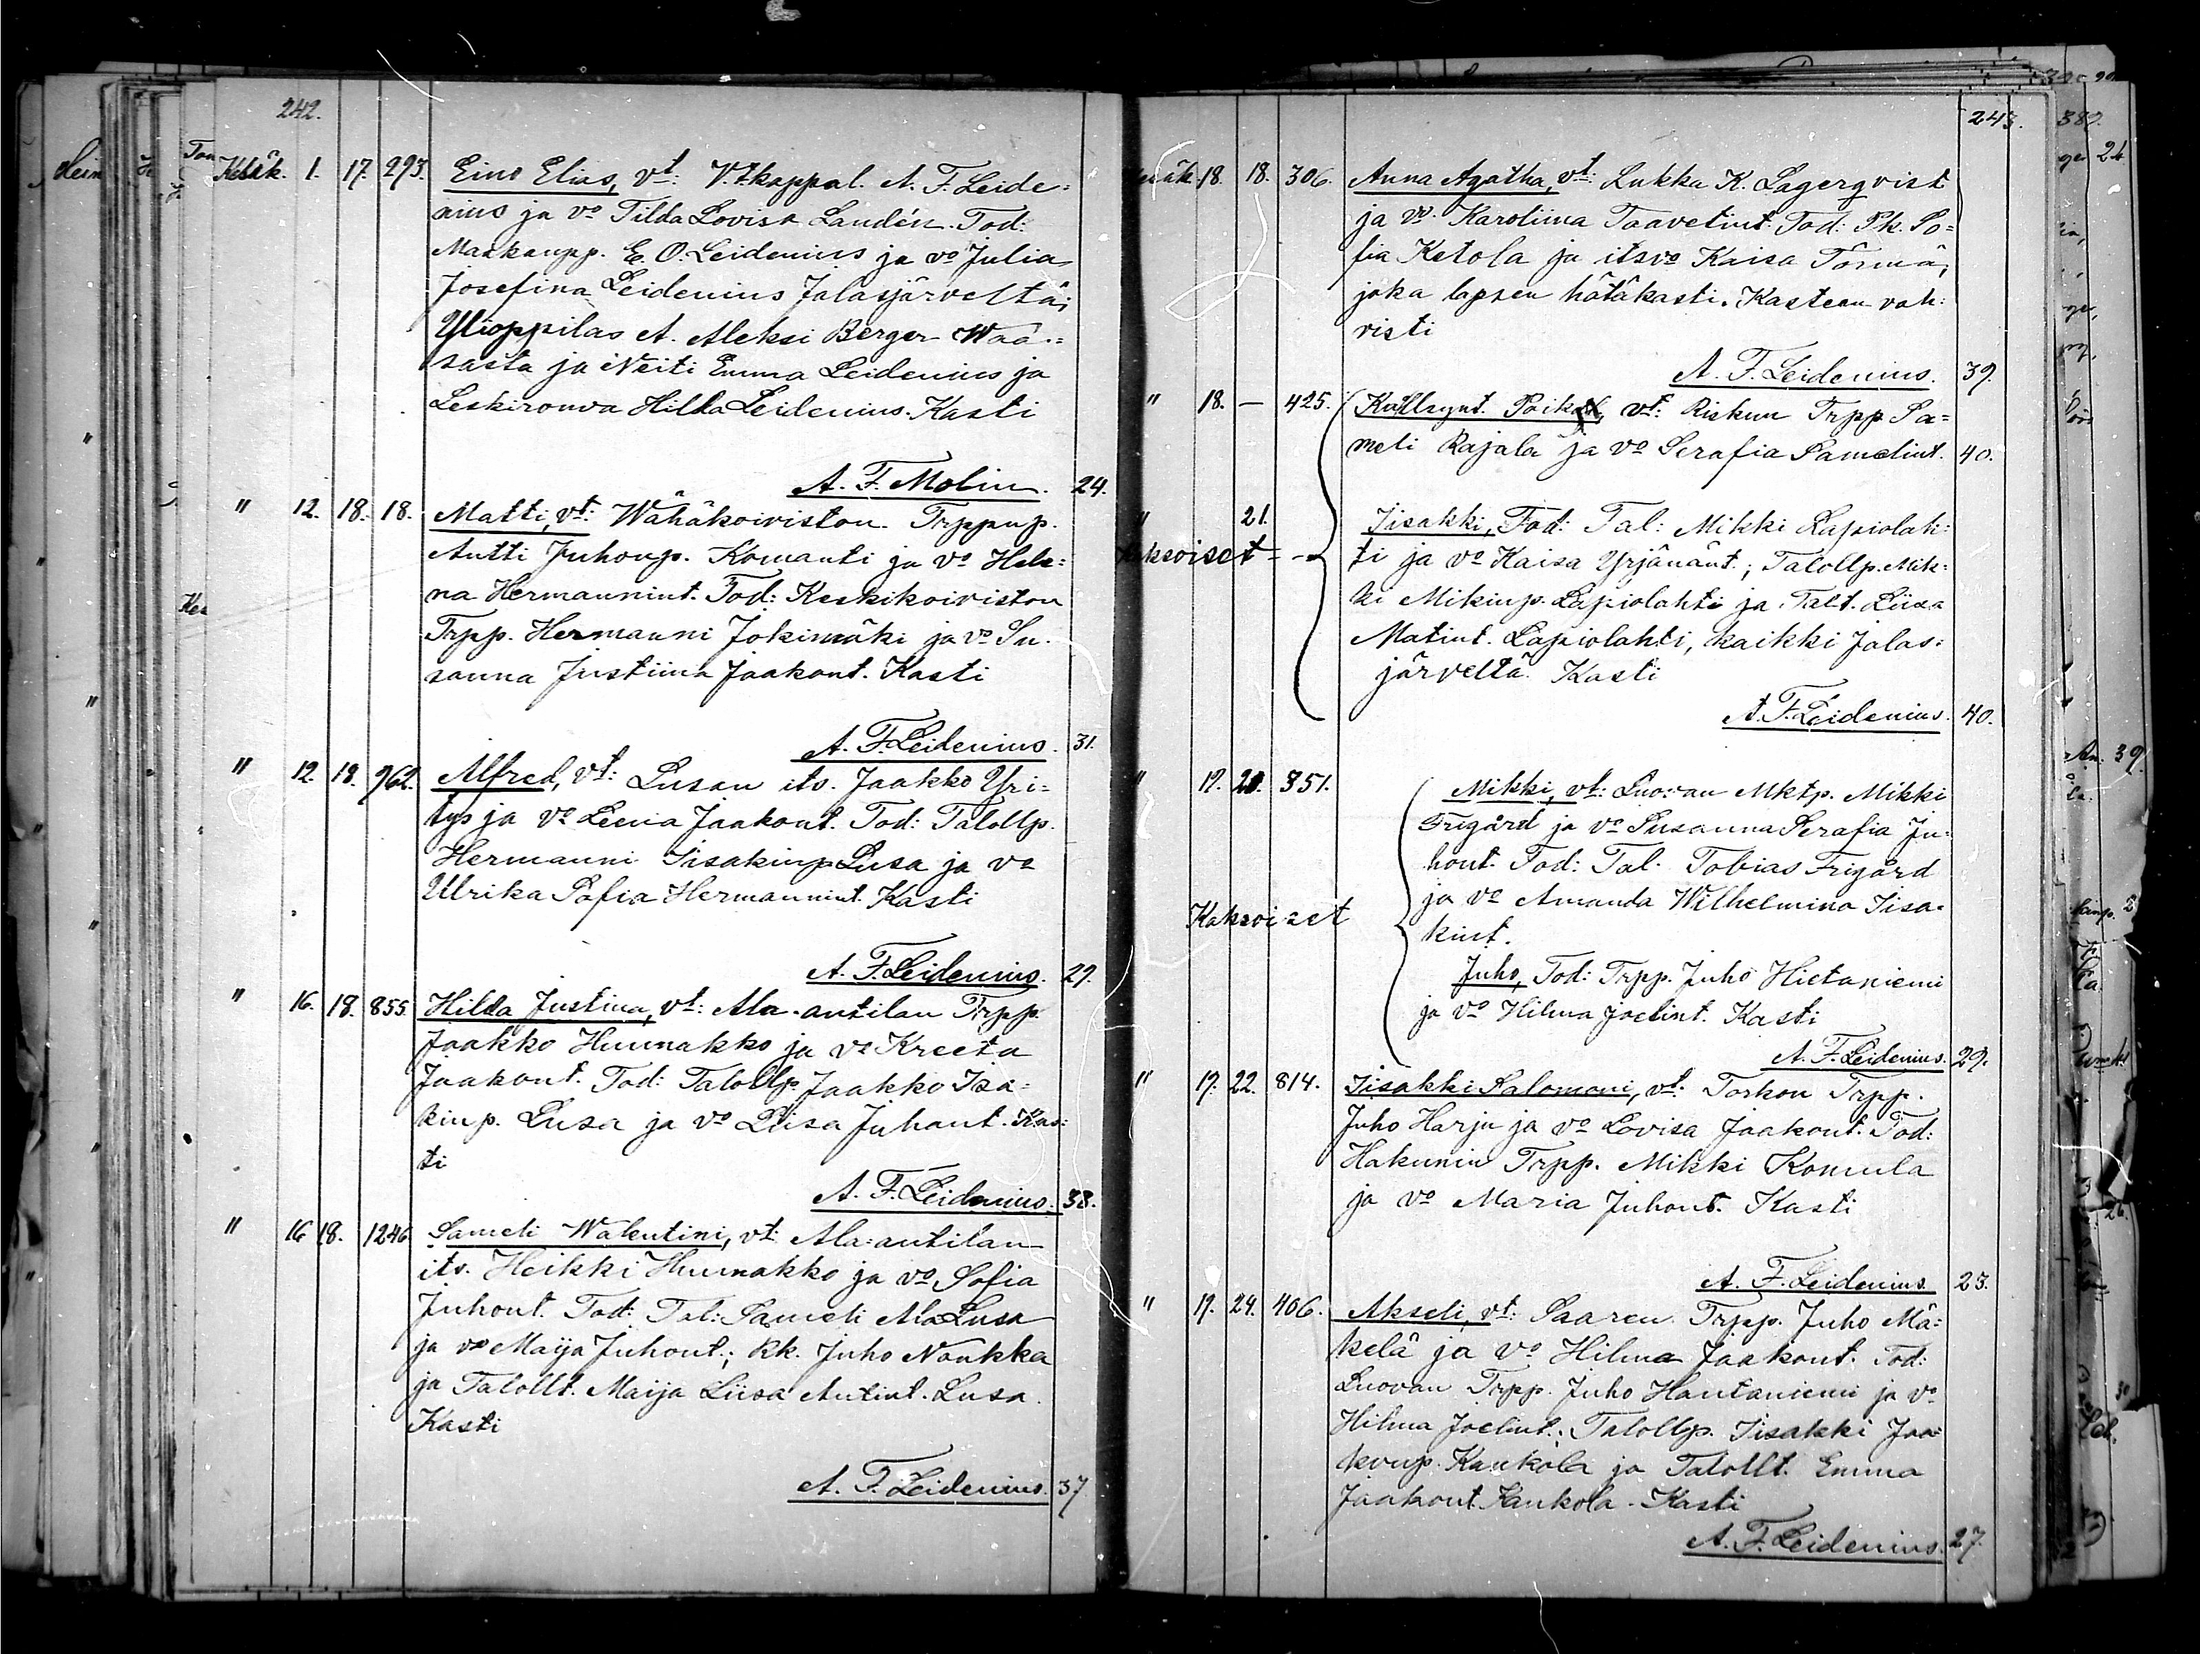 242.
Kesäk. 1. 17. 293. Eino Elias, vt: V.t.kappal. A. F. Leide=
nius ja vo Tilda Lovisa Landén. Tod:
Maakaupp. E. O. Leidenius ja vo Julia
Josefina Leidenius Jalasjärveltä;
Ylioppilas A. Aleksi Berger Waa=
sasta ja Neiti Emma Leidenius ja
Leskirouva Hilda Leidenius. Kasti
A. F. Molin. 24.
" 12. 18. 18. Matti, vt: Wähäkoiviston Trppnp.
Antti Juhonp. Komanti ja vo Hele=
na Hermannint. Tod: Keskikoiviston
Trpp. Hermanni Jokimäki ja vo Su=
sanna Justiina Jaakont. Kasti
A. F. Leidenius. 31.
" 12. 18. 962. Alfred, vt: Lusan its. Jaakko Yri=
tys ja vo Leena Jaakont. Tod: Talollp.
Hermanni Iisakinp. Lusa ja vo
Ulrika Sofia Hermannint. Kasti
A. F. Leidenius. 29.
" 16. 18. 855. Hilda Justina, vt: Ala-antilan Trpp.
Jaakko Hunnakko ja vo Kreeta
Jaakont. Tod: Talollp. Jaakko Isa=
kinp. Lusa ja vo Liisa Juhont. Kas=
ti
A. F. Leidenius. 38.
" 16 18. 1246 Sameli Walentini, vt Ala=antilan
its. Heikki Hunnakko ja vo Sofia
Juhont. Tod: Tal: Sameli Ala Lusa
ja vo Maija Juhont.; Rk. Juho Nankka
ja Talollt. Maija Liisa Antint. Lusa.
Kasti
A. F. Leidenius. 37
243.
18. 18. 306. Anna Agatha, vt: Lukka K. Lagerqvist
ja vo Karoliina Taavetint. Tod: Pk. So=
fia Ketola ja itsvo Kaisa Törmä,
joka lapsen hätäkasti. Kasteen vah=
visti
A. F. Leidenius. 39.
" 18. — 425. Kuollsynt. Poika, vt: Riskun Trpp. Sa=
meli Rajala ja vo Serafia Samelint. 40.
" 21. Iisakki, Tod: Tal: Mikki Lapiolah=
ti ja vo Kaisa Yrjänänt.; Talollp. Mik=
ki Mikinp. Lapiolahti ja Talt. Liisa
Matint. Lapiolahti, kaikki Jalas=
järveltä. Kasti
A. F. Leidenius. 40.
" 19. 20. 351. Mikki, vt: Luovan Mktp. Mikki
Frigård ja vo Susanna Serafia Ju=
hont. Tod: Tal. Tobias Frigård
ja vo Amanda Wilhelmina Iisa=
kint.
Kaksoiset
Juho, Tod: Trpp. Juho Hietaniemi
ja vo Hilma Joelint. Kasti
A. F. Leidenius. 29.
" 19. 22. 814. Iisakki Salomoni, vt. Torkon Trpp.
Juho Harju ja vo Lovisa Jaakont. Tod:
Hakunin Trpp. Mikki Komula
ja vo Maria Juhont. Kasti
A. F. Leidenius. 25.
" 19. 24. 406. Akseli, vt: Saaren Trpp. Juho Mä=
kelä ja vo Hilma Jaakont. Tod:
Luovan Trpp. Juho Hautaniemi ja vo
Hilma Joelint.; Talollp. Iisakki Jaa=
konp. Kankola ja Talollt. Emma
Jaakont. Kankola. Kasti
A. F. Leidenius. 27.